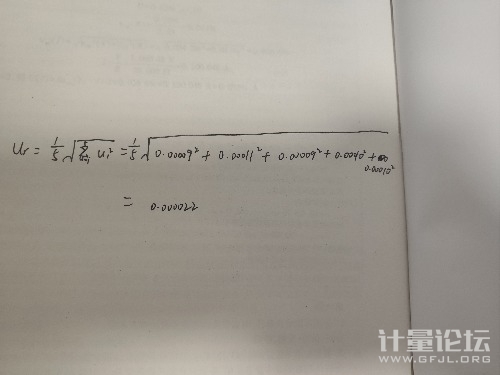 Ur = 1/5 √(∑ᵢ₌₁⁵ uᵢ²) = 1/5 √(0.00009² + 0.00011² + 0.00009² + 0.0010² + 0.00010²)
= 0.000022
计量论坛
WWW.GFJL.ORG